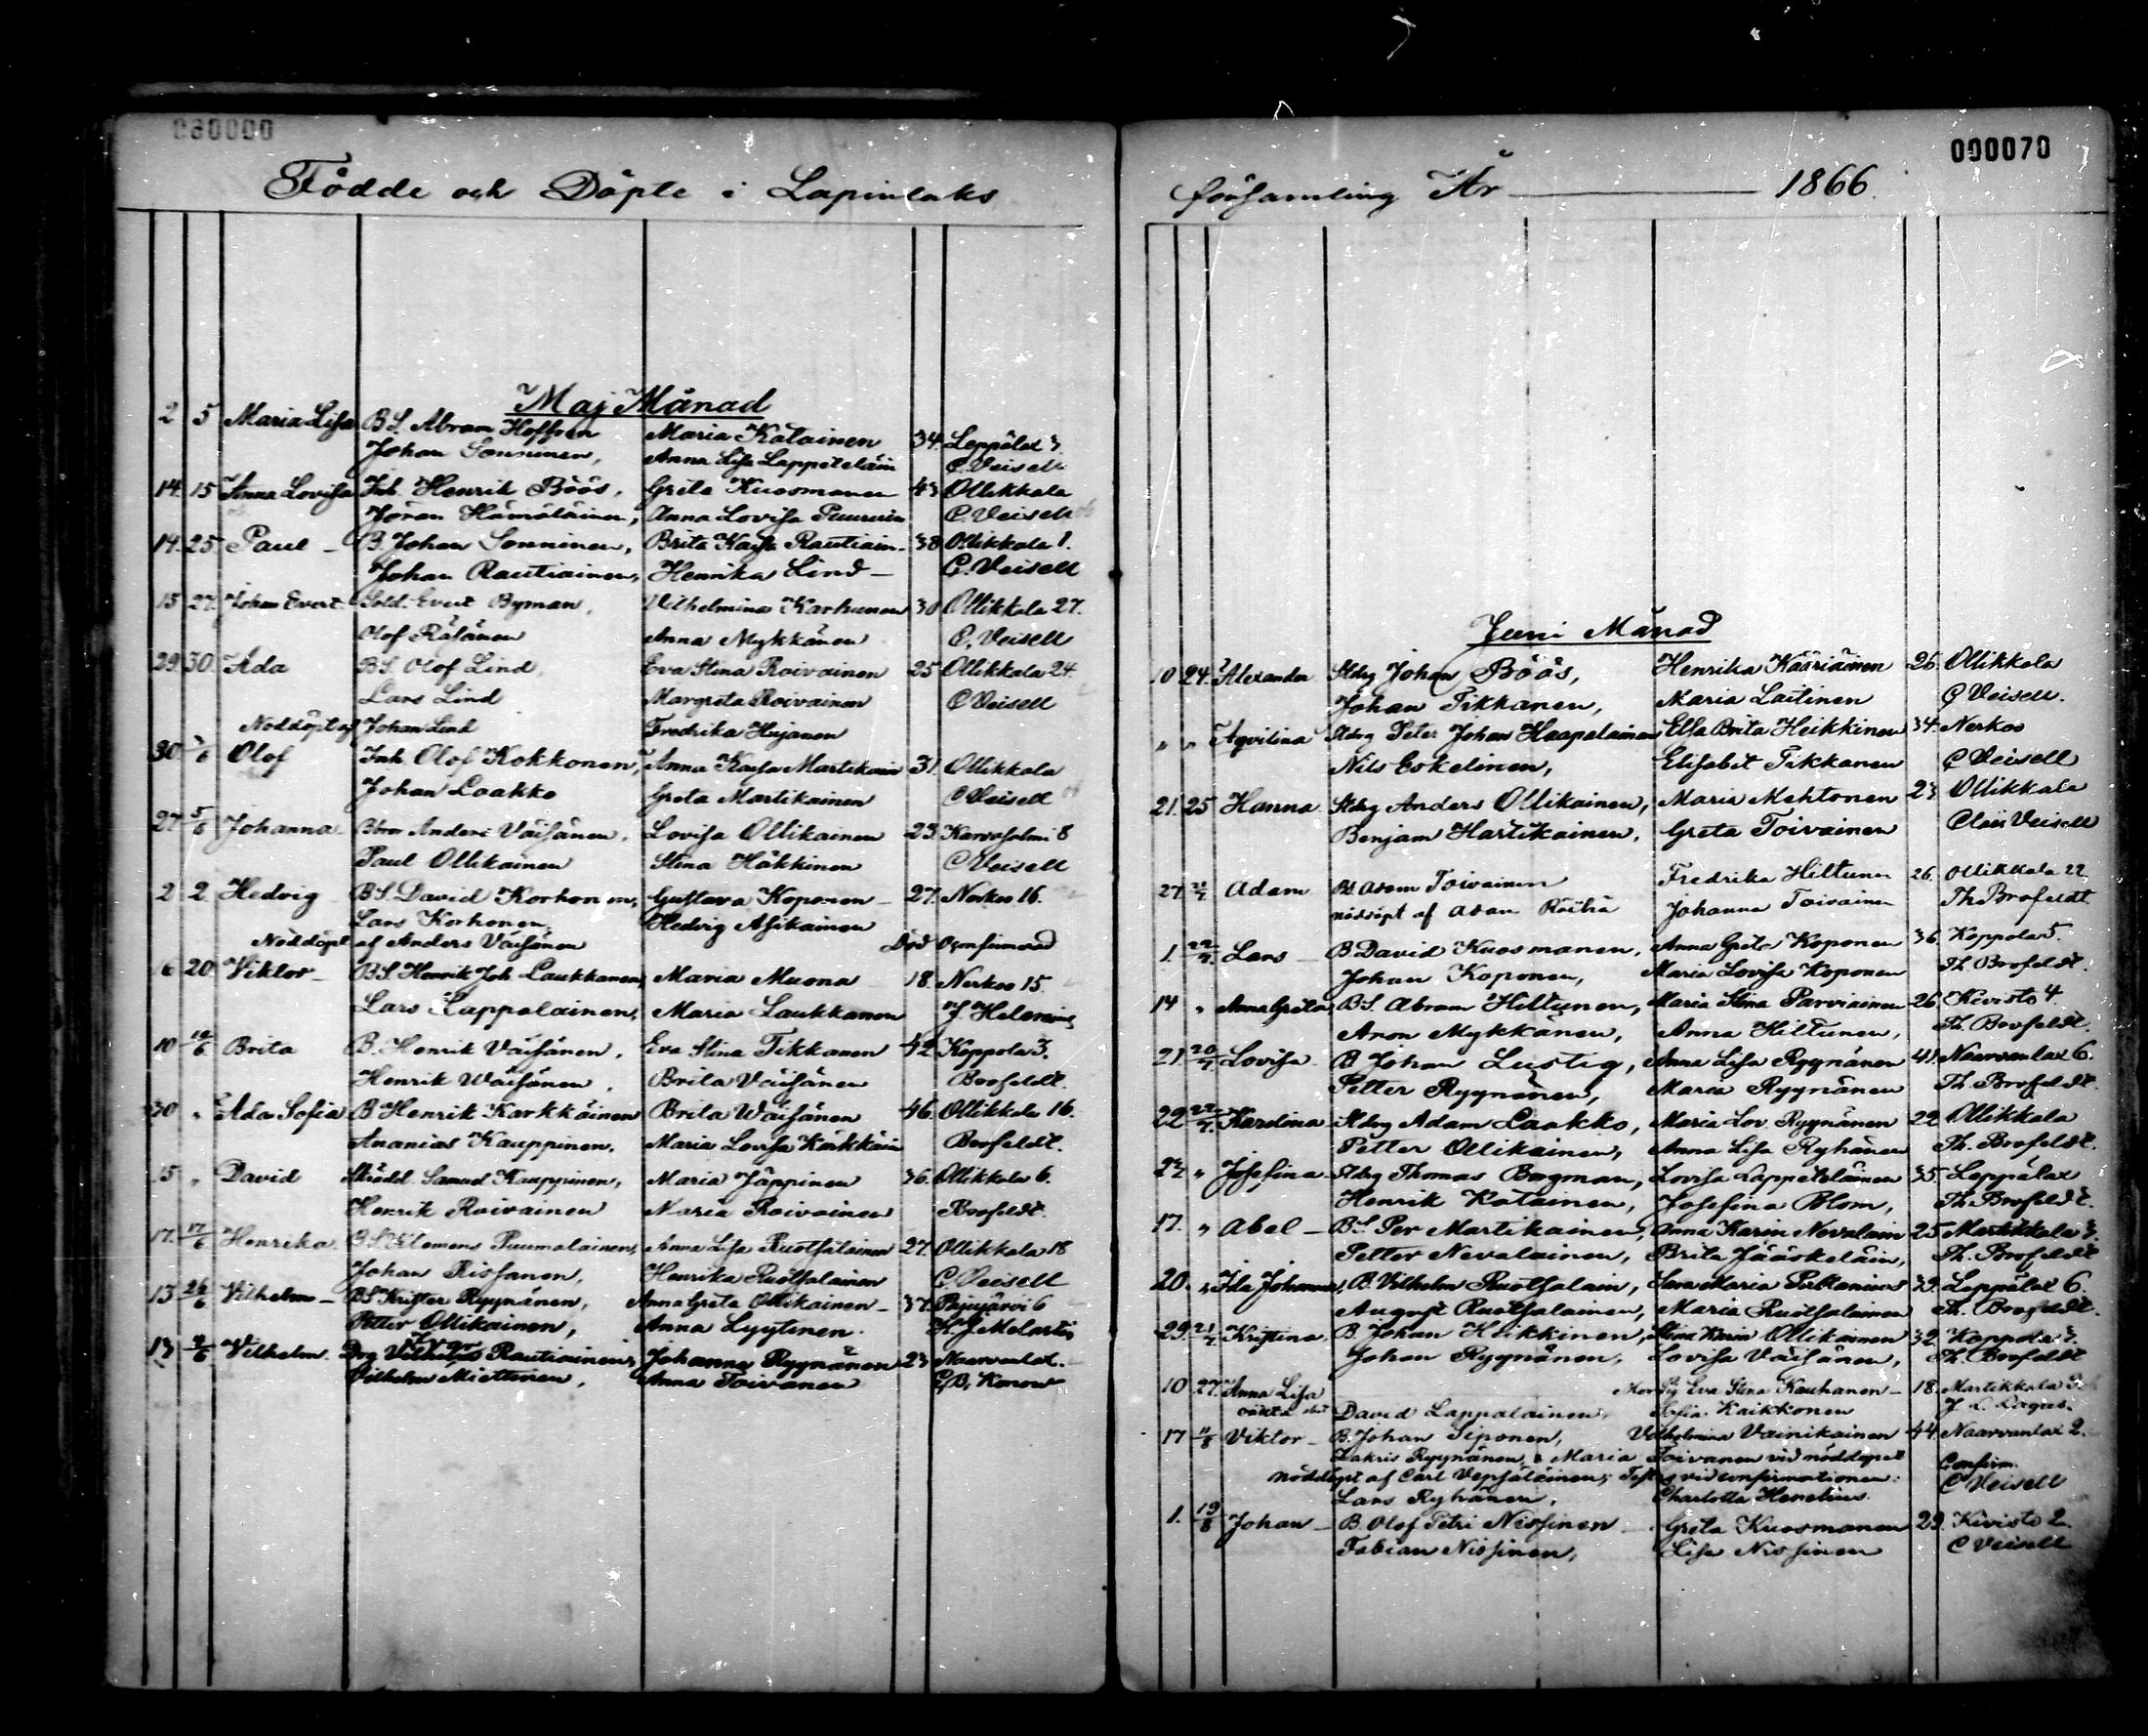 Födde och Döpte i Lapinlaks
Maj Månad
2 5 Maria Lisa BS. Abram Hoffren Maria Katainen 34. Leppälax 3.
Johan Sonninen, Anna Lisa Lappeteläin C. Veisell
14. 15 Anna Lovisa Inh. Henrik Böös, Greta Kuosmanen 43 Ollikkala
Jöran Hämäläinen, Anna Lovisa C. Veisell
14. 25 Paul – B. Johan Sonninen, Brita Kaisa Rautiain. 38 Ollikkala 1.
Johan Rautiainen, Henrika Lind – C. Veisell
15 27. Johan Evert. Sold. Evert Byman, Vilhelmina Karhunen 30 Ollikkala 27.
Olof Räsänen Anna Mykkänen C. Veisell
29. 30. Ada BS. Olof Lind, Eva Stina Roivainen 25 Ollikkala 24.
Lars Lind Margreta Roivainen C Veisell
Noddöpt af Johan Lind Fredrika Hujanen
30. 3/6 Olof Inh. Olof Kokkonen, Anna Kaisa Martikain 31. Ollikkala
Johan Laakko Greta Martikainen C Veisell
27 5/6 Johanna Anders Väisänen, Lovisa Ollikainen 23. 8
Paul Ollikainen Stina Häkkinen C Veisell
2 2 Hedvig BS. David Korhonen, Gustava Koponen – 27. Nerkoo 16.
Lars Korhonen, Hedvig Asikainen
Nöddöpt af Anders Väisänen Död
16 20. Viktor – BS. Henrik Joh. Laukkanen, Maria Muona 18. Nerkoo 15
Lars Lappalainen, Maria Laukkanen J. Helenius
10 Brita B. Henrik Väisänen, Eva Stina Tikkanen 42 Koppola 3.
Henrik Wäisänen, Brita Väisänen Brofeldt.
30 „ Ada Sofia B Henrik Karkkäinen Brita Wäisänen 46. Ollikkala 16.
Ananias Kauppinen. Maria Lovisa Karkkäin Brofeldt.
15 „ David Samuel Kauppinen, Maria Jäppinen 36. Ollikkala 6.
Henrik Roivainen Maria Roivainen Brofeldt.
17. 17/6 Henrika. BS. Klemens Puumalainen, Anna Lisa Ruotsalainen 27. Ollikkala 18
Johan Rissanen, Henrika Ruotsalainen C Veisell
13 26/6 Vilhelm – BS Krister Ryynänen, Anna Greta Ollikainen – 37. Pajujärvi 6
Petter Ollikainen, Anna Lyytinen. K. J. Melartin
13 Vilhelm. Drg Rautiainen, Johanna Ryynänen 23 Naarvanlax.
Vilhelm Miettinen, Anna Toivanen Konow
000070
församling År 1866.
Juni Månad
10 24. Alexander Stdrg Johan Böös, Henrika Kääriäinen 26. Ollikkala
Johan Tikkanen, Maria Laitinen C Veisell.
„ „ Aqvilina Stdrg Peter Johan Haapalainen Elsa Brita Heikkinen 34. Nerkoo
Nils Eskelinen, Elisabet Tikkanen C Veisell
21. 25 Hanna. Stdrg Anders Ollikainen, Maria Mehtonen 23 Ollikkala
Benjam Hartikainen, Greta Toivainen Claës Veisell
27 Adam Bd. Adam Toivainen Fredrika Hiltunen 26. Ollikkala 22
nöddöpt af Adam Räihä Johanna Toivainen Th Brofeldt
1. 22/7. Lars – B David Kuosmanen, Anna Greta Koponen 36. Koppola 5.
Johan Koponen, Maria Lovisa Koponen Th. Brofeldt.
14 „ Anna Greta, BS. Abram Hiltunen, Maria Stina Parviainen 26. Kivistö 4.
Aron Mykkänen, Anna Hiltunen, Th. Brofeldt.
21. Lovisa. B Johan Lustig, Anna Lisa Ryynänen 41. Naarvanlax 6.
Petter Ryynänen, Maria Ryynänen Th Brofeldt.
22 22/7. Karolina Stdrg Adam Laakko, Maria Lov. Ryynänen 22 Ollikkala
Petter Ollikainen, Anna Lisa Ryhänen Th. Brofeldt.
23 „ Josefina. Stdrg Thomas Bagman, Lovisa Lappeteläinen 35. Leppälax
Henrik Katainen, Josefina Blom, Th. Brofeldt.
17. „ Abel – BS. Per Martikainen, Anna Karin Nevalain 25 Martikkala 3.
Petter Nevalainen, Brita Jääskeläin, Th. Brofeldt
20. „ Ida Johanna, B. Vilhelm Ruotsalain, Sara Maria 39. Leppälax 6.
August Ruotsalainen, Maria Ruotsalainen Th. Brofeldt.
29. Kristina B. Johan Heikkinen, Stina Karin Ollikainen 32. Koppola 3.
Johan Ryynänen, Lovisa Väisänen, Th. Brofeldt
10 27. Anna Lisa Eva Stina Kauhanen – 18. Martikkala
oäkta David Lappalainen, Sofia Kaikkonen J. L. Lagus.
17 11/8 Viktor – B. Johan Siponen, Vilhelmina Vainikainen 44. Naarvanlax 2.
Zakris Ryynänen, & Maria Toivanen vid nöddopet
nöddöpt af Carl Vepsäläinen; vid confirmationen: Confirm.
Lars Ryhänen, Charlotta Henelius. C Veisell
1. 19/8 Johan – B. Olof Petri Nissinen – Greta Kuosmanen 29. Kivistö 2.
Fabian Nissinen, Lisa Nissinen C Veisell